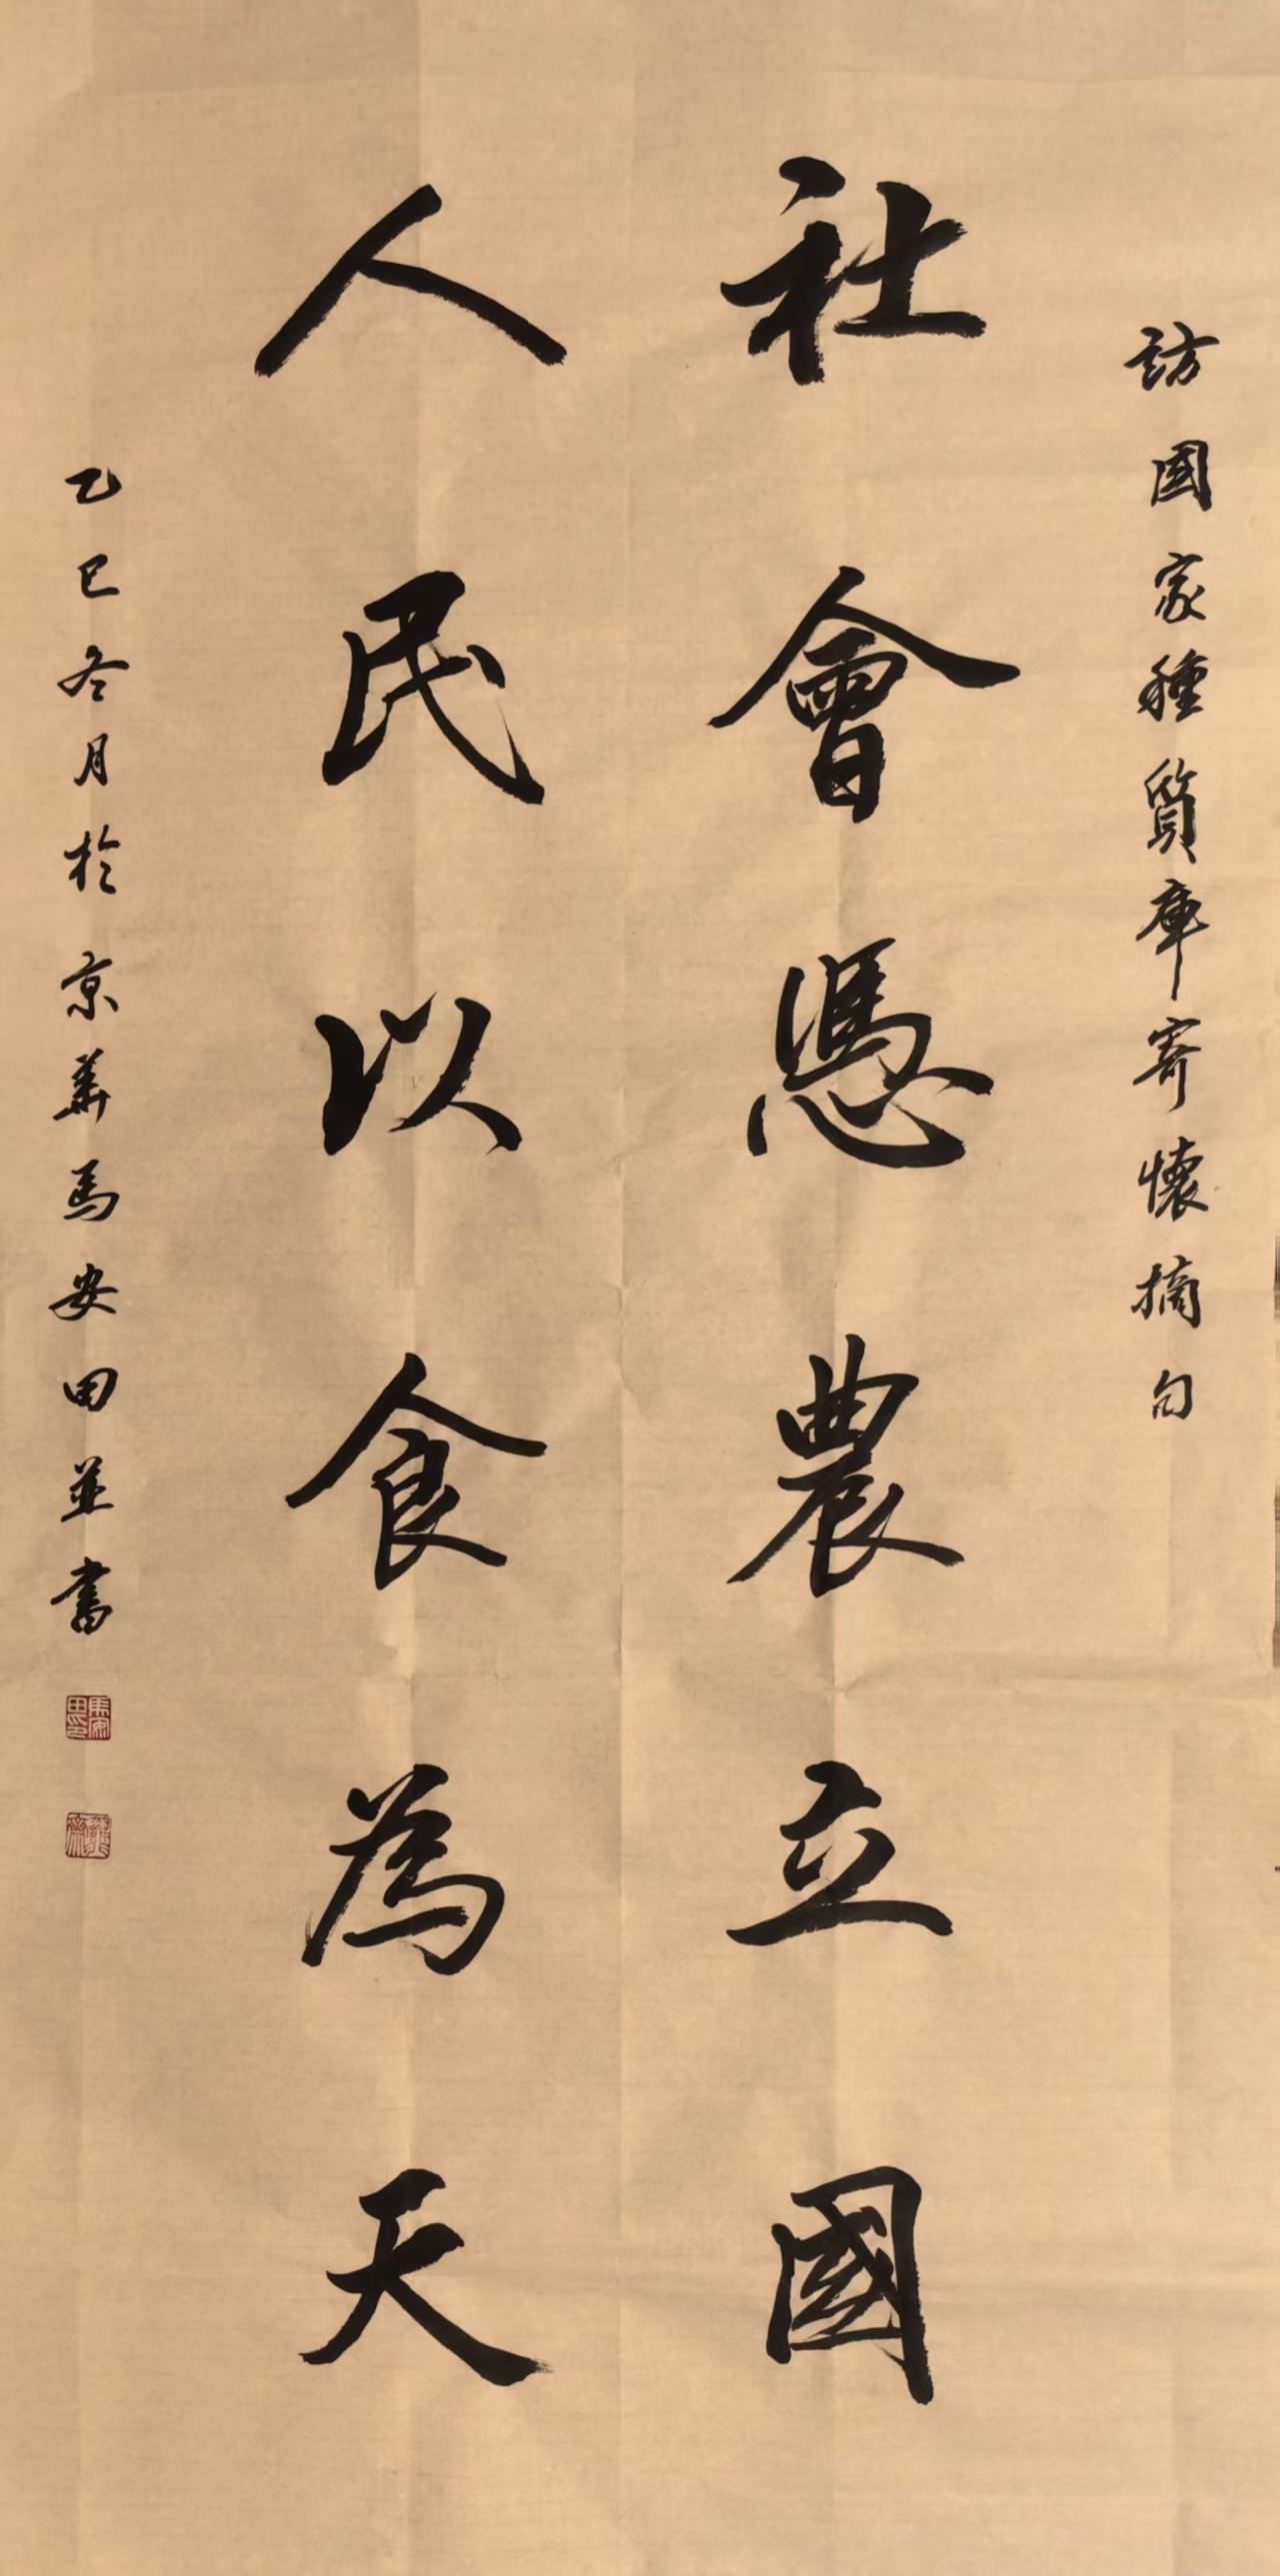 訪國家種質庫寄懷摘句
社會憑農立國
人民以食為天
乙巳冬月於京華馬安田並書
馬安田印